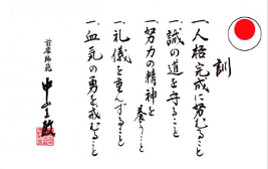 訓
一、人格完成に努むること
一、誠の道を守ること
一、努力の精神を養うこと
一、礼儀を重んずること
一、血気の勇を戒むること
首席師範
中山正敏